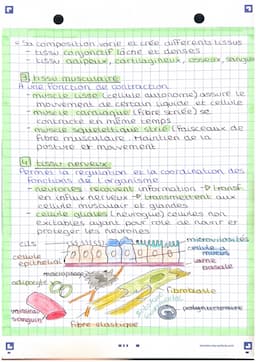 - Sa composition varie et crée différents tissus
- tissu conjonctif lâche et denses
- tissu adipeux, cartilagineux, osseux, sanguin
3) tissu musculaire
A une fonction de contraction
- muscle lisse (cellule autonome) assure le
mouvement de certain liquide et cellule
- muscle cardiaque (fibre striée) se
contracte en même temps
- muscle squelettique strié (faisceaux de
fibre musculaire, maintien de la
posture et mouvement
4) tissu nerveux
Permet la régulation et la coordination des
fonctions de l'organisme
- neurones reçoivent information → transf
en influx nerveux → transmettent aux
cellule musculair et glandes
- cellule gliales (névroglie) cellules non
excitables ayant pour role de nourir et
protéger les neurones
cils
microvillosités
cellule à mucus
cellule épithélial
lame basale
macrophage
adipocyte
fibroblaste
vaisseau sanguin
fibre elastique